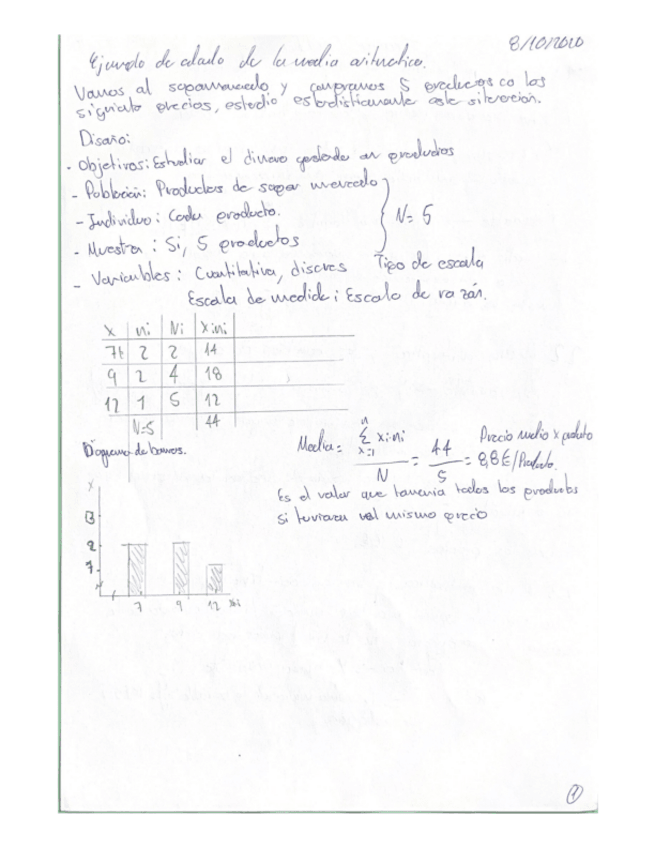 8/10/2020
Ejemplo de calculo de la media aritmetica.
Vamos al supermercado y compramos 5 productos co los
siguiente precios, estudio estadisticamente este situación.
Diseño:
- Objetivos: Estudiar el dinero gastado en productos
- Población: Productos de super mercado
- Individuo: Cada producto.
- Muestra: Si, 5 productos
N= 5
- Variables: Cuantitativa, discres Tipo de escala
Escala de medida: Escala de razón.
X ni Ni Xini
7€ 2 2 14
9 2 4 18
12 1 5 12
N=5 44
Diagrama de barras.
Media = n Σ x=1 xi·ni / N = 44 / 5 = 8,8€/Producto.
Precio medio x producto
Es el valor que tomaria todos los productos
si tuvieran el mismo precio
Y
3
2
1
7 9 12 Xi
1